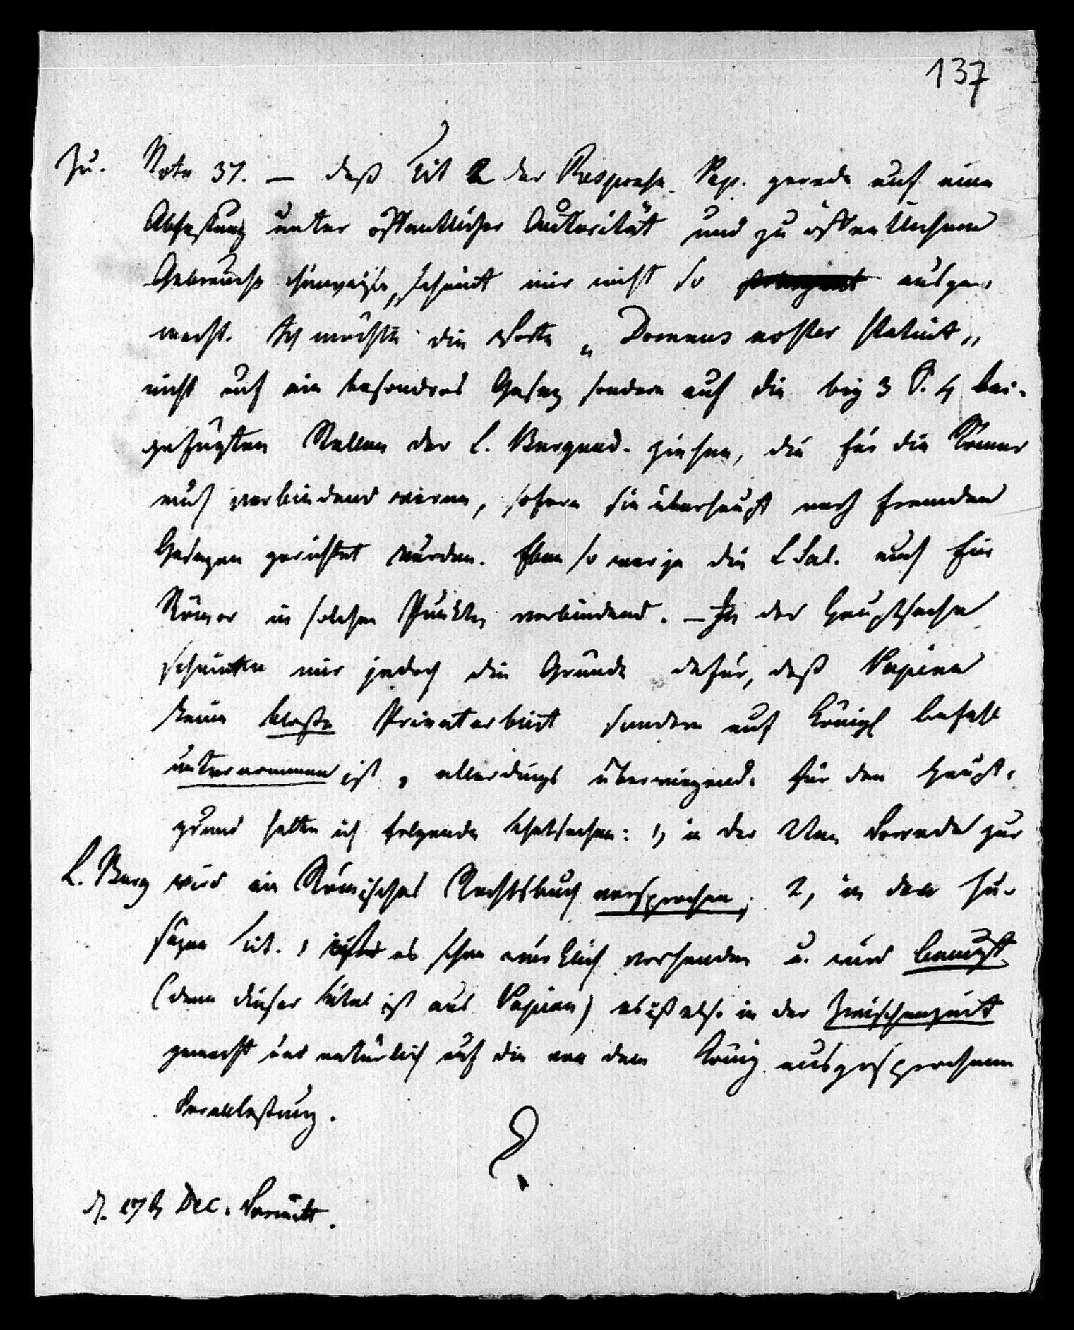 137
Zu. Note 37. — daß Tit 2 der Respons. Pap. gerade auf eine
Abfassung unter öffentlicher Autorität und zu öffentlichem
Gebrauche hinweise, scheint mir nicht so ausge-
macht. Ich möchte die Worte „Dominus noster statuit„
nicht auf ein besonderes Gesez sondern auf die bey 3 P. 4 bei-
gefügten Stellen der L. Burgund. ziehen, die für die Römer
auch verbindend waren, sofern sie überhaupt nach fremden
Gesezen gerichtet wurden. Eben so war ja die L Sal. auch für
Römer in solchen Punkten verbindend. — In der Hauptsache
scheinen mir jedoch die Gründe dafür, daß Papian
keine bloße Privatarbeit sondern auf Königl Befehl
unternommen ist, allerdings überwiegend. Für den Haupt-
grund halte ich folgende Thatsachen: 1, in der Vorrede zur
L. Burg wird ein Römisches Rechtsbuch versprochen; 2, in den Zu-
säzen Tit. 1 ist es schon wirklich vorhanden u. wird benuzt
(denn dieser Titel ist aus Papian) es ist also in der Zwischenzeit
gemacht und natürlich auf die von dem König ausgesprochene
Veranlassung.
d. 17 Dec.